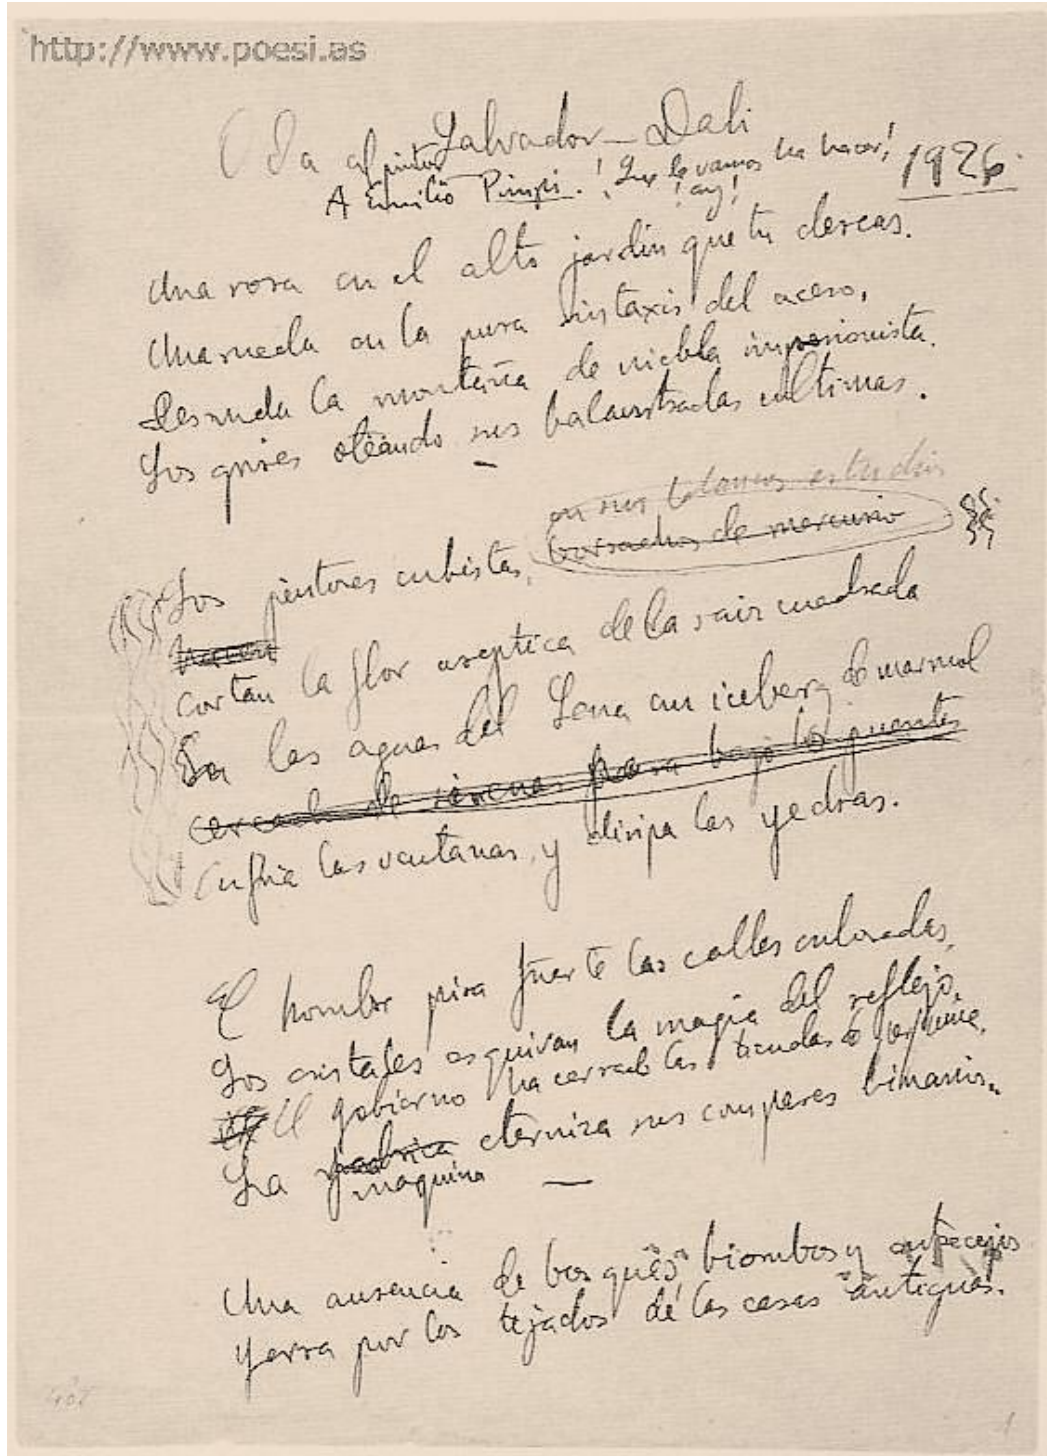 http://www.poesi.as
Oda al pintor Salvador Dali
A Emilio Pimpi. ¡Que le vamos ha hacer!
¡ay!
1926.
Una rosa en el alto jardin que tu deseas.
Una rueda en la pura sintaxis del acero,
Desnuda la montaña de niebla impresionista.
Los grises oteando sus balaustradas ultimas.
en sus blancos estudios
Los pintores cubistas, borrachos de mercurio
hacen
cortan la flor aseptica de la raiz cuadrada
En las aguas del Sena un iceberg de marmol
cercado de sirenas pasa bajo los puentes
enfria las ventanas, y disipa las yedras.
El hombre pisa fuerte las calles enlosadas,
Los cristales esquivan la magia del reflejo,
El gobierno ha cerrado las tiendas de perfume,
La eterniza sus compases binarios.
maquina
Una ausencia de bosques biombos y entrecejos
yerra por los tejados de las casas antiguas.
1